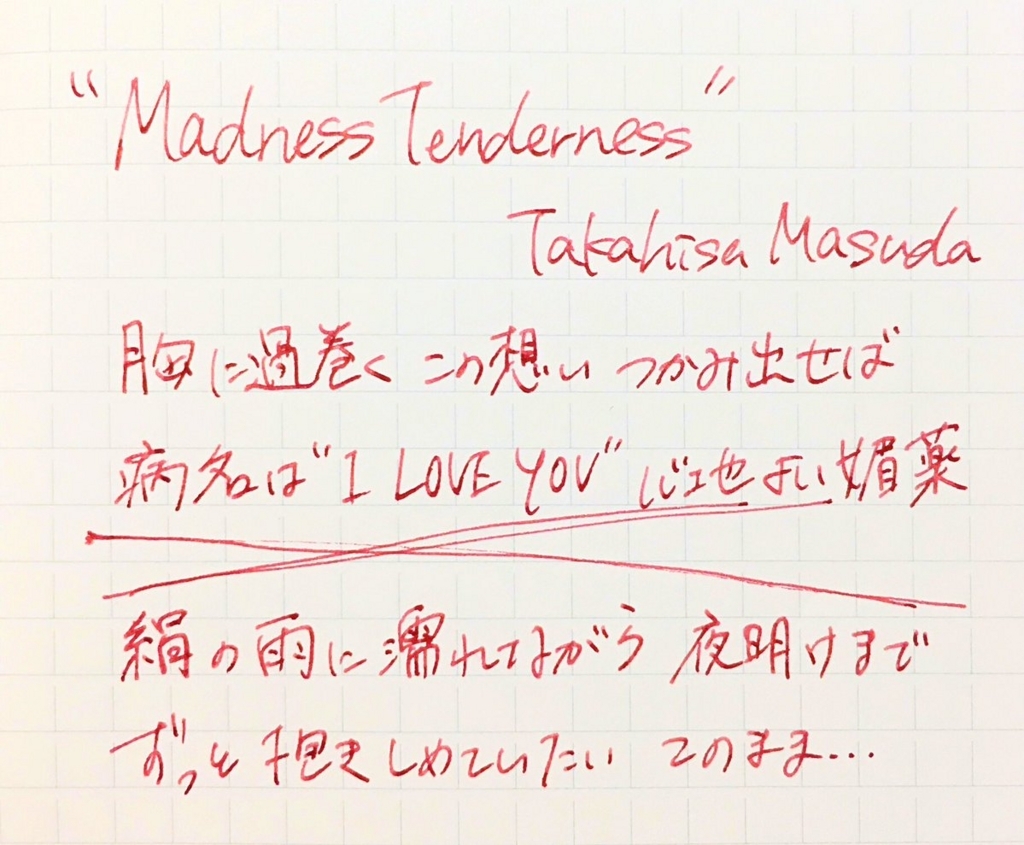 “Madness Tenderness”
Takahisa Masuda
胸に過巻く この想い つかみ出せば
病名は“I LOVE YOU” 心地よい媚薬
絹の雨に濡れてながら 夜明けまで
ずっと抱きしめていたい このまま...